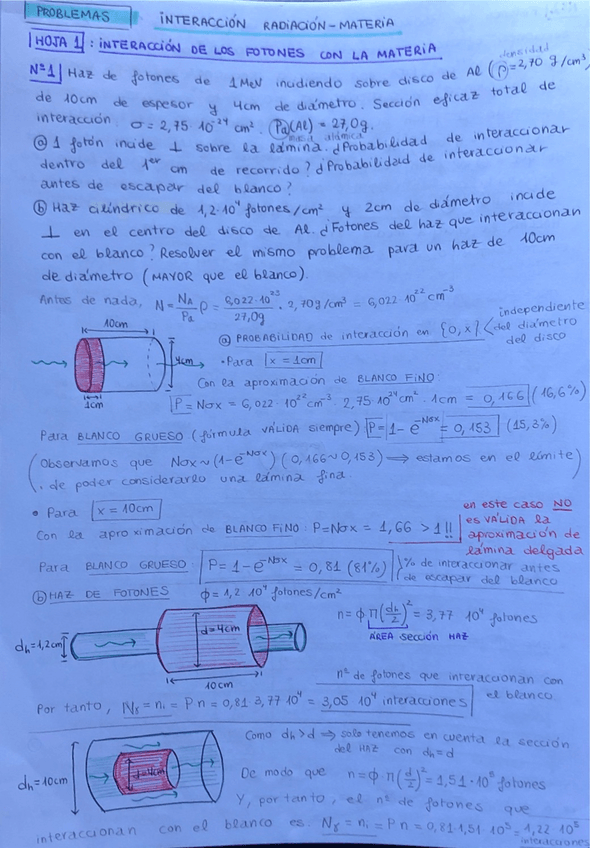 PROBLEMAS
INTERACCIÓN RADIACIÓN-MATERIA
HOJA 1: INTERACCIÓN DE LOS FOTONES CON LA MATERIA
densidad
Nº1 Haz de fotones de 1MeV incidiendo sobre disco de Al (ρ=2,70 g/cm³)
de 10cm de espesor y 4cm de diámetro. Sección eficaz total de
interacción σ = 2,75·10⁻²⁴ cm². Pa(Al) = 27,0g.
masa atómica
ⓐ 1 fotón incide ⊥ sobre la lámina. ¿Probabilidad de interaccionar
dentro del 1er cm de recorrido? ¿Probabilidad de interaccionar
antes de escapar del blanco?
ⓑ Haz cilíndrico de 1,2·10⁴ fotones/cm² y 2cm de diámetro incide
⊥ en el centro del disco de Al. ¿Fotones del haz que interaccionan
con el blanco? Resolver el mismo problema para un haz de 10cm
de diámetro (MAYOR que el blanco).
Antes de nada, N = NA/Pa ρ = 6,022·10²³/27,0g · 2,70g/cm³ = 6,022·10²² cm⁻³
10cm
4cm
1cm
ⓐ PROBABILIDAD de interacción en {0,x}
independiente
del diámetro
del disco
• Para x = 1cm
Con la aproximación de BLANCO FINO:
P = Nσx = 6,022·10²² cm⁻³ · 2,75·10²⁴ cm² · 1cm = 0,166 (16,6%)
Para BLANCO GRUESO (fórmula VÁLIDA siempre) P = 1 - e^-Nσx = 0,153 (15,3%)
(Observamos que Nσx ~ (1-e^-Nσx) (0,166~0,153) ⟹ estamos en el límite
de poder considerarlo una lámina fina.)
• Para x = 10cm
Con la aproximación de BLANCO FINO: P=Nσx = 1,66 > 1!!
en este caso NO
es VÁLIDA la
aproximación de
lámina delgada
Para BLANCO GRUESO: P = 1 - e^-Nσx = 0,81 (81%)
% de interaccionar antes
de escapar del blanco
ⓑ HAZ DE FOTONES ϕ = 1,2 10⁴ fotones/cm²
dh = 1,2cm
d=4cm
10cm
n = ϕ π(dh/2)² = 3,77 10⁴ fotones
ÁREA sección HAZ
nº de fotones que interaccionan con
el blanco
Por tanto, Nγ = ni = P n = 0,81 3,77 10⁴ = 3,05 10⁴ interacciones
dh = 10cm
d=4cm
Como dh > d ⟹ solo tenemos en cuenta la sección
del HAZ con dh=d
De modo que n = ϕ·π(d/2)² = 1,51·10⁵ fotones
Y, por tanto, el nº de fotones que
interaccionan con el blanco es Nγ = ni = P n = 0,81·1,51 10⁵ = 1,22 10⁵
interacciones